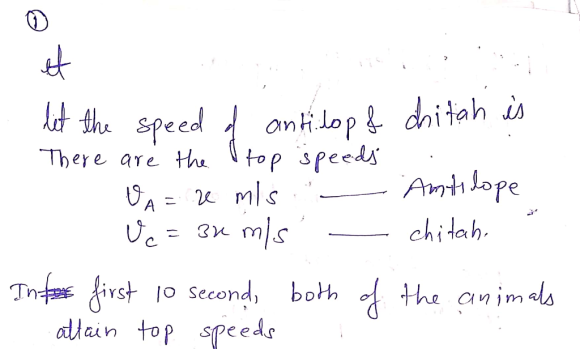 ①
let the speed of antilop & chitah is
There are the top speeds
V_A = x m/s —— Antilope
V_C = 3x m/s —— chitah.
In first 10 second, both of the animals
attain top speeds